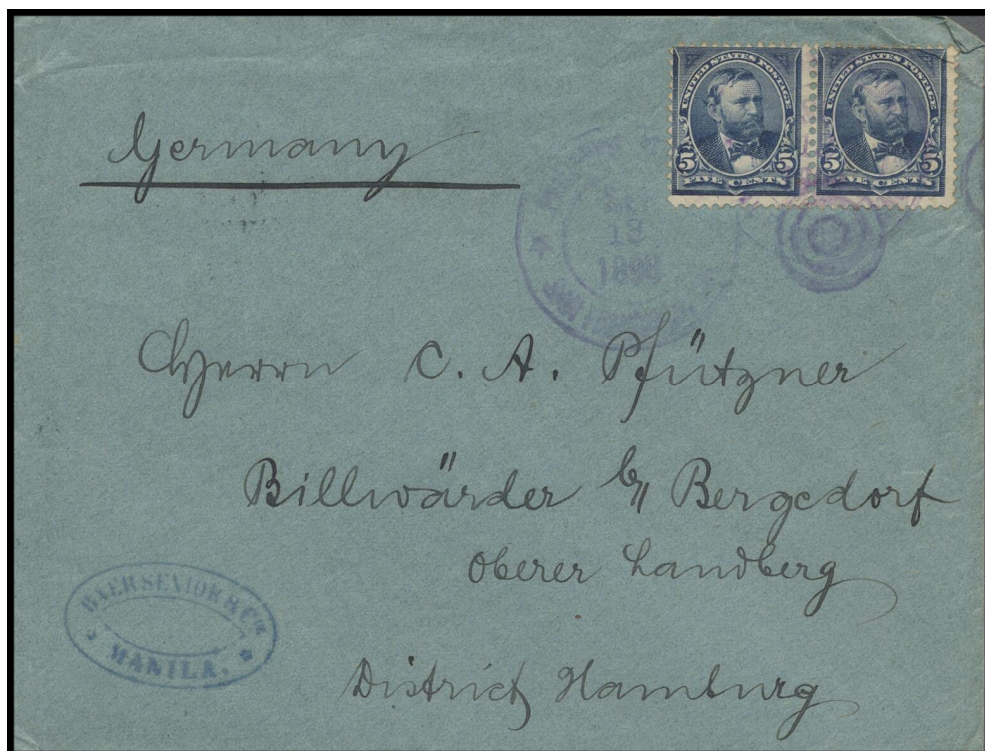 UNITED STATES POSTAGE
5 5
FIVE CENTS
UNITED STATES POSTAGE
5 5
FIVE CENTS
Germany
19
1898
SAN
Herrn C. A. Pfützner
Billwärder b/ Bergedorf
Oberer Landberg
District Hamburg
BAER SENIOR & Cie
MANILA.